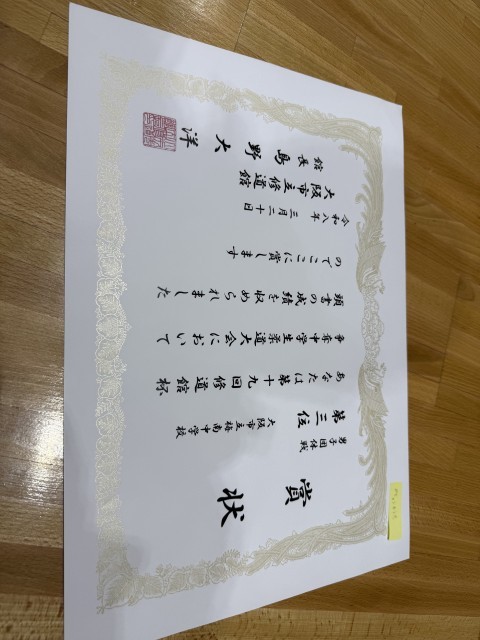 賞状
男子団体戦
第三位
大阪市立梅南中学校
あなたは第十九回修道館杯
争奪中学生柔道大会において
頭書の成績を収められました
のでここに賞します
令和八年三月二十日
大阪市立修道館
館長 島野大洋